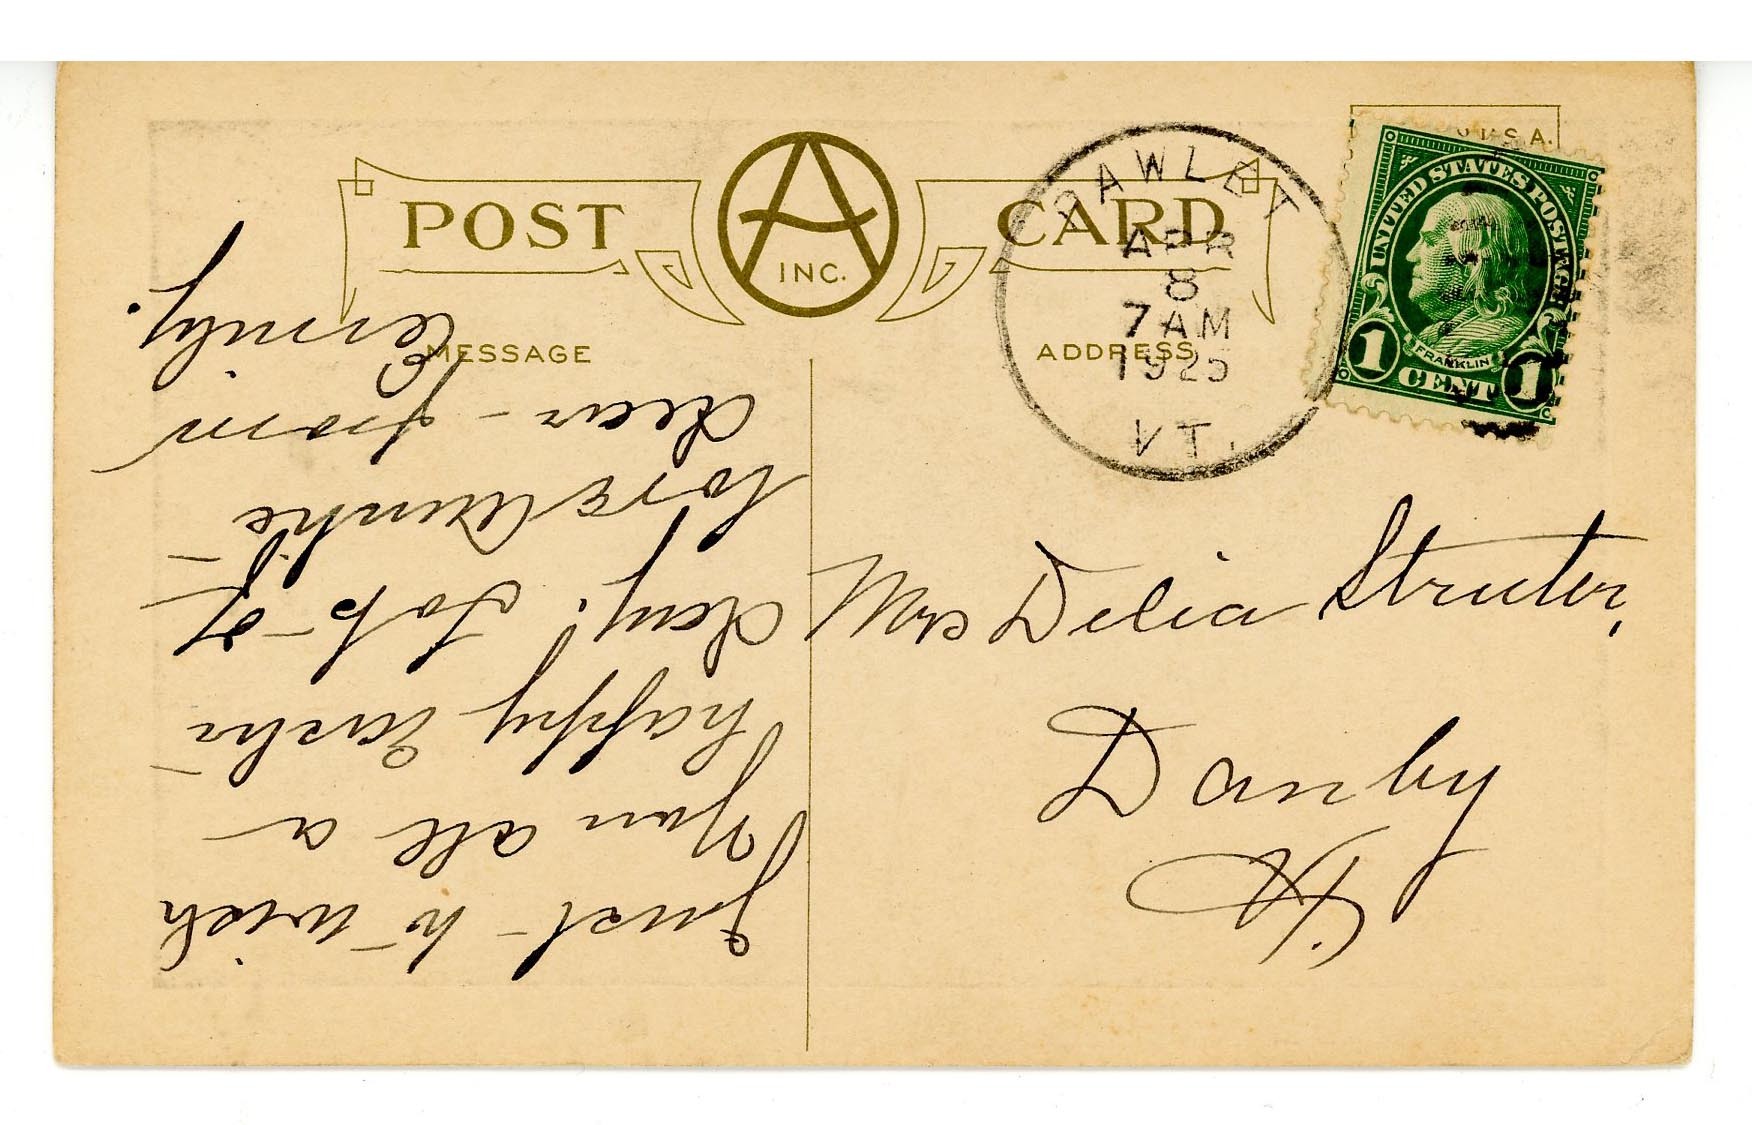 POST CARD
A
INC.
MESSAGE
ADDRESS
PAWLET
APR
8
7 AM
1925
VT.
U.S.A.
UNITED STATES POSTAGE
FRANKLIN
1 CENT 1
Just to wish
You all a
happy Easter
day. Lots of
love Auntie
dear - from
Emily.
Mrs Delia Struter,
Danby
Vt